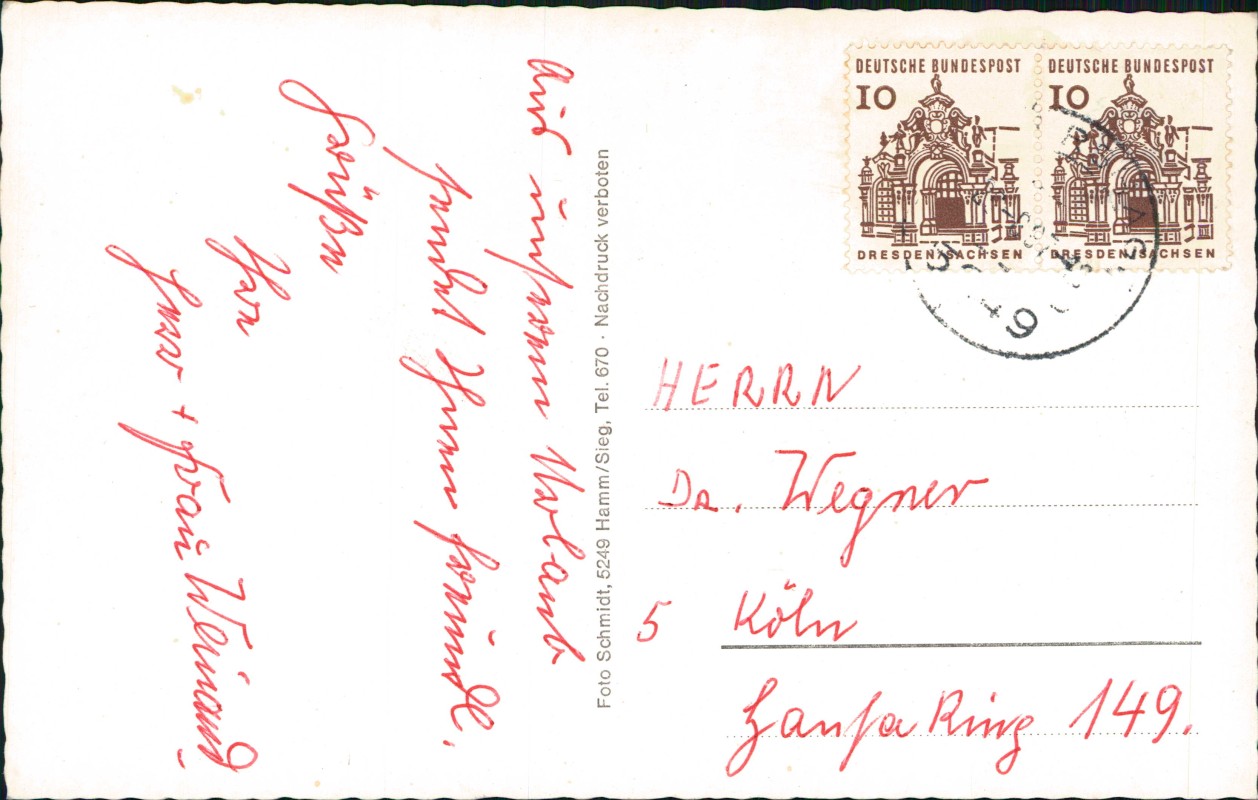 Aus unserm Urlaub
sendet Ihnen freundl.
Grüßen
Ihr
Herr + Frau Weinand
Foto Schmidt, 5249 Hamm/Sieg, Tel. 670 · Nachdruck verboten
DEUTSCHE BUNDESPOST
10
DRESDEN/SACHSEN
DEUTSCHE BUNDESPOST
10
DRESDEN/SACHSEN
HERRN
Dr. Wegner
5 Köln
Hansa Ring 149.